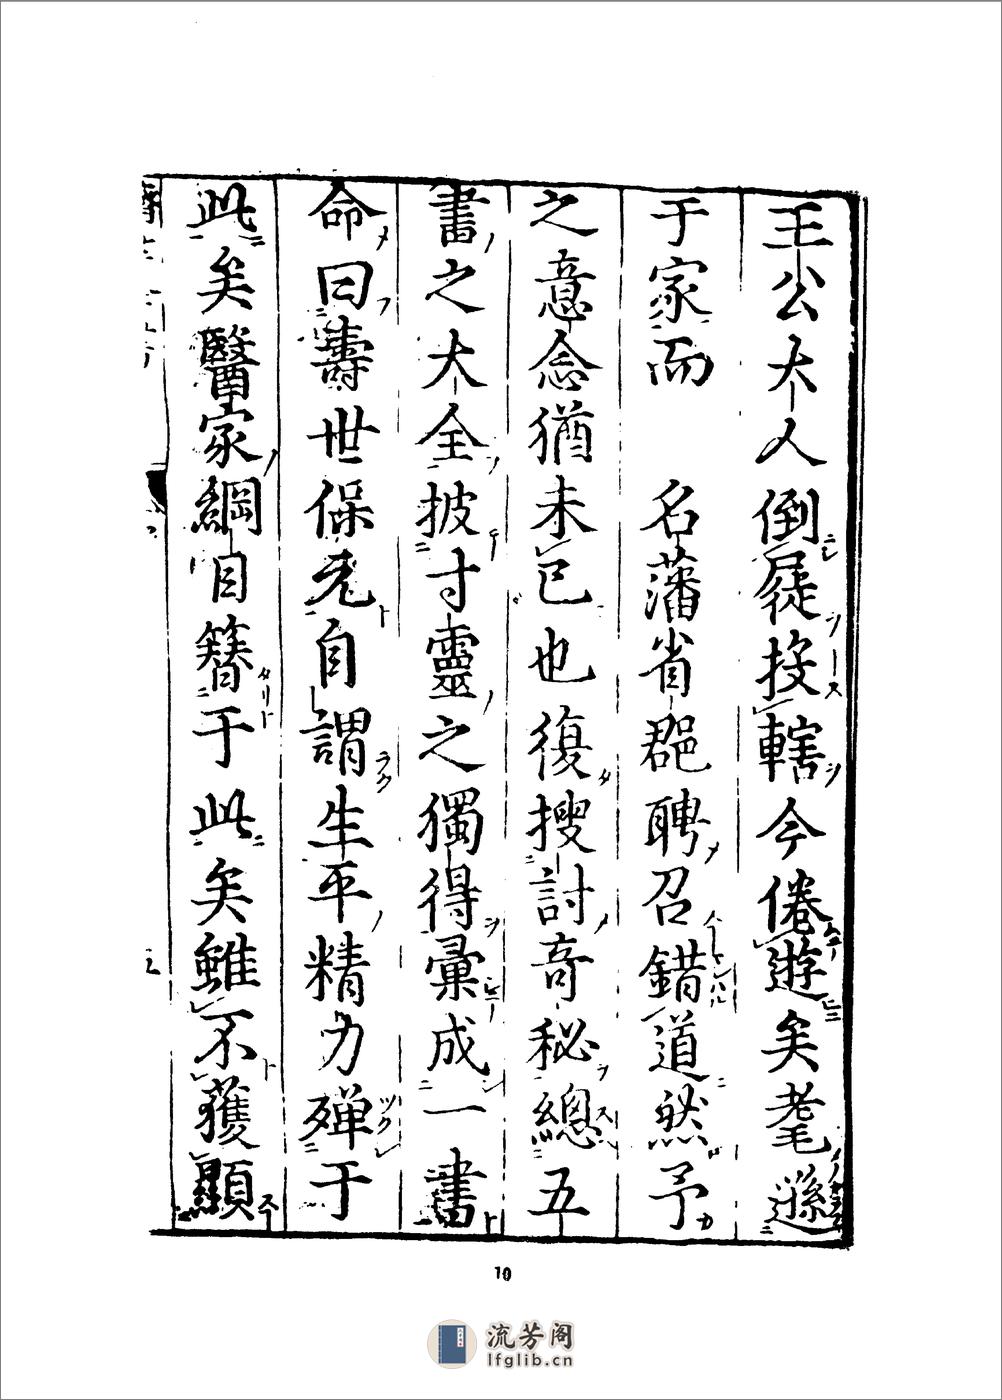 王公大人倒屣投轄今倦遊矣耄遜
于家而　名藩省郡聘召錯道然予
之意念猶未已也復搜討奇秘總五
書之大全披寸靈之獨得彙成一書
命曰壽世保元自謂生平精力殫于
此矣醫家綱目簪于此矣雖不獲顯
10
流芳阁
lfglib.cn